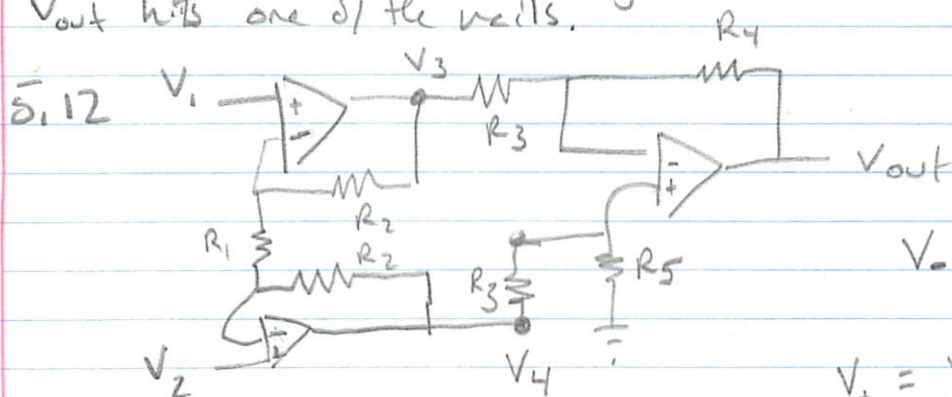 Vout hits one of the rails.
5.12
V1
+
-
V3
R3
R4
-
+
Vout
R2
R1
R2
R3
R5
V-
-
+
V2
V4
V+ =